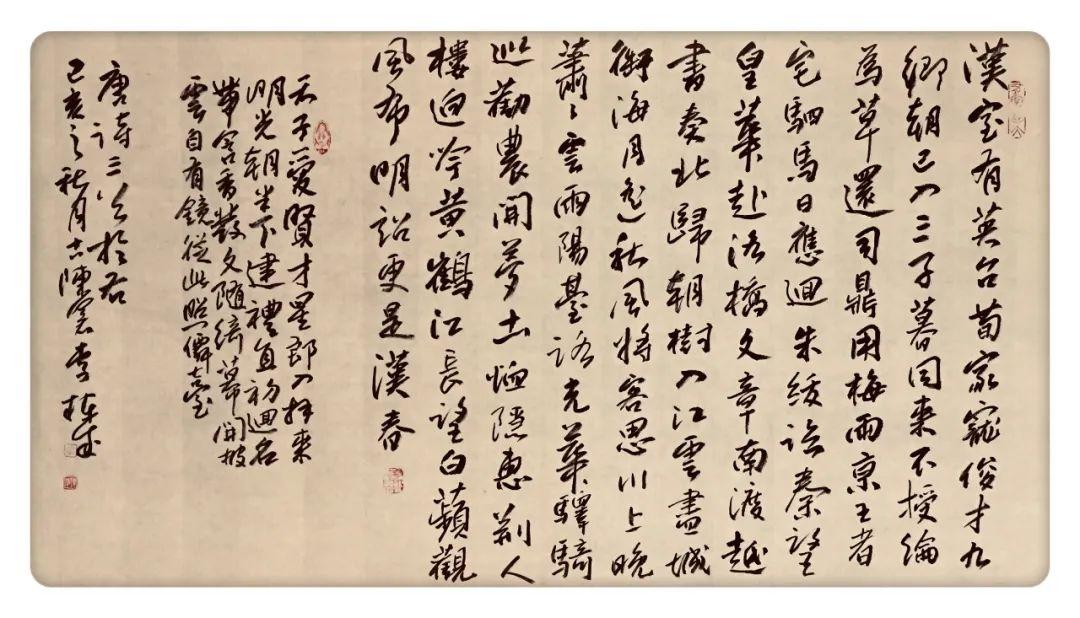 漢室有英台荀家寵俊才九
卿朝已入三子暮同來不授綸
為草還司鼎用梅兩京王者
宅駟馬日應迴朱紱臨秦望
皇華赴洛橋文章南渡越
書奏北歸朝樹入江雲盡城
銜海月遙秋風將客思川上晚
蕭々雲雨陽臺路光華驛騎
巡勸農聞夢土恤隱惠荊人
樓迥吟黃鶴江長望白蘋觀
風布明詔更是漢春
天子愛賢才星郎入拜來
明光朝半下建禮直初迴名
帶含香發文隨綺幕開披
雲自有鏡從此照僊臺
唐詩三首於右
己亥之秋月古陳雲李